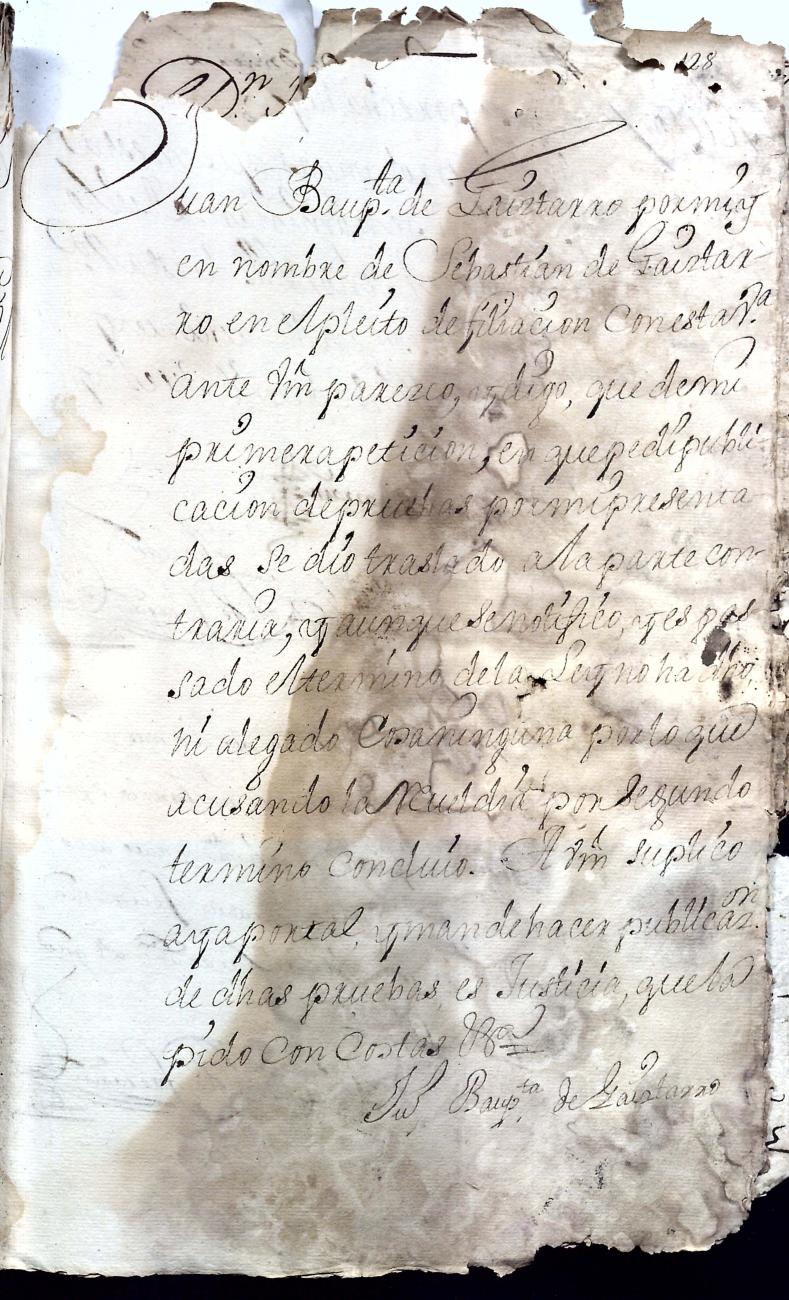 128
Juan Baup.ta de Gaiztarro por mi, y
en nombre de Sebastian de Gaiztar-
ro en el pleito de filiacion con esta V.a
ante Vm parezco, y digo, que de mi
primera peticion, en que pedi publi-
cacion de pruebas por mi presenta
das se dio traslado a la parte con-
traria, y aunque se notifico, y es pas
sado el termino de la Ley no ha dho,
ni alegado cosa ninguna por lo que
acusando la Reveldia por segundo
termino concluio. A Vm suplico
aya por tal, y mande hacer publicaz.on
de dhas pruebas es Justicia, que la
pido con costas &a
Ju Baup.ta de Gaiztarro